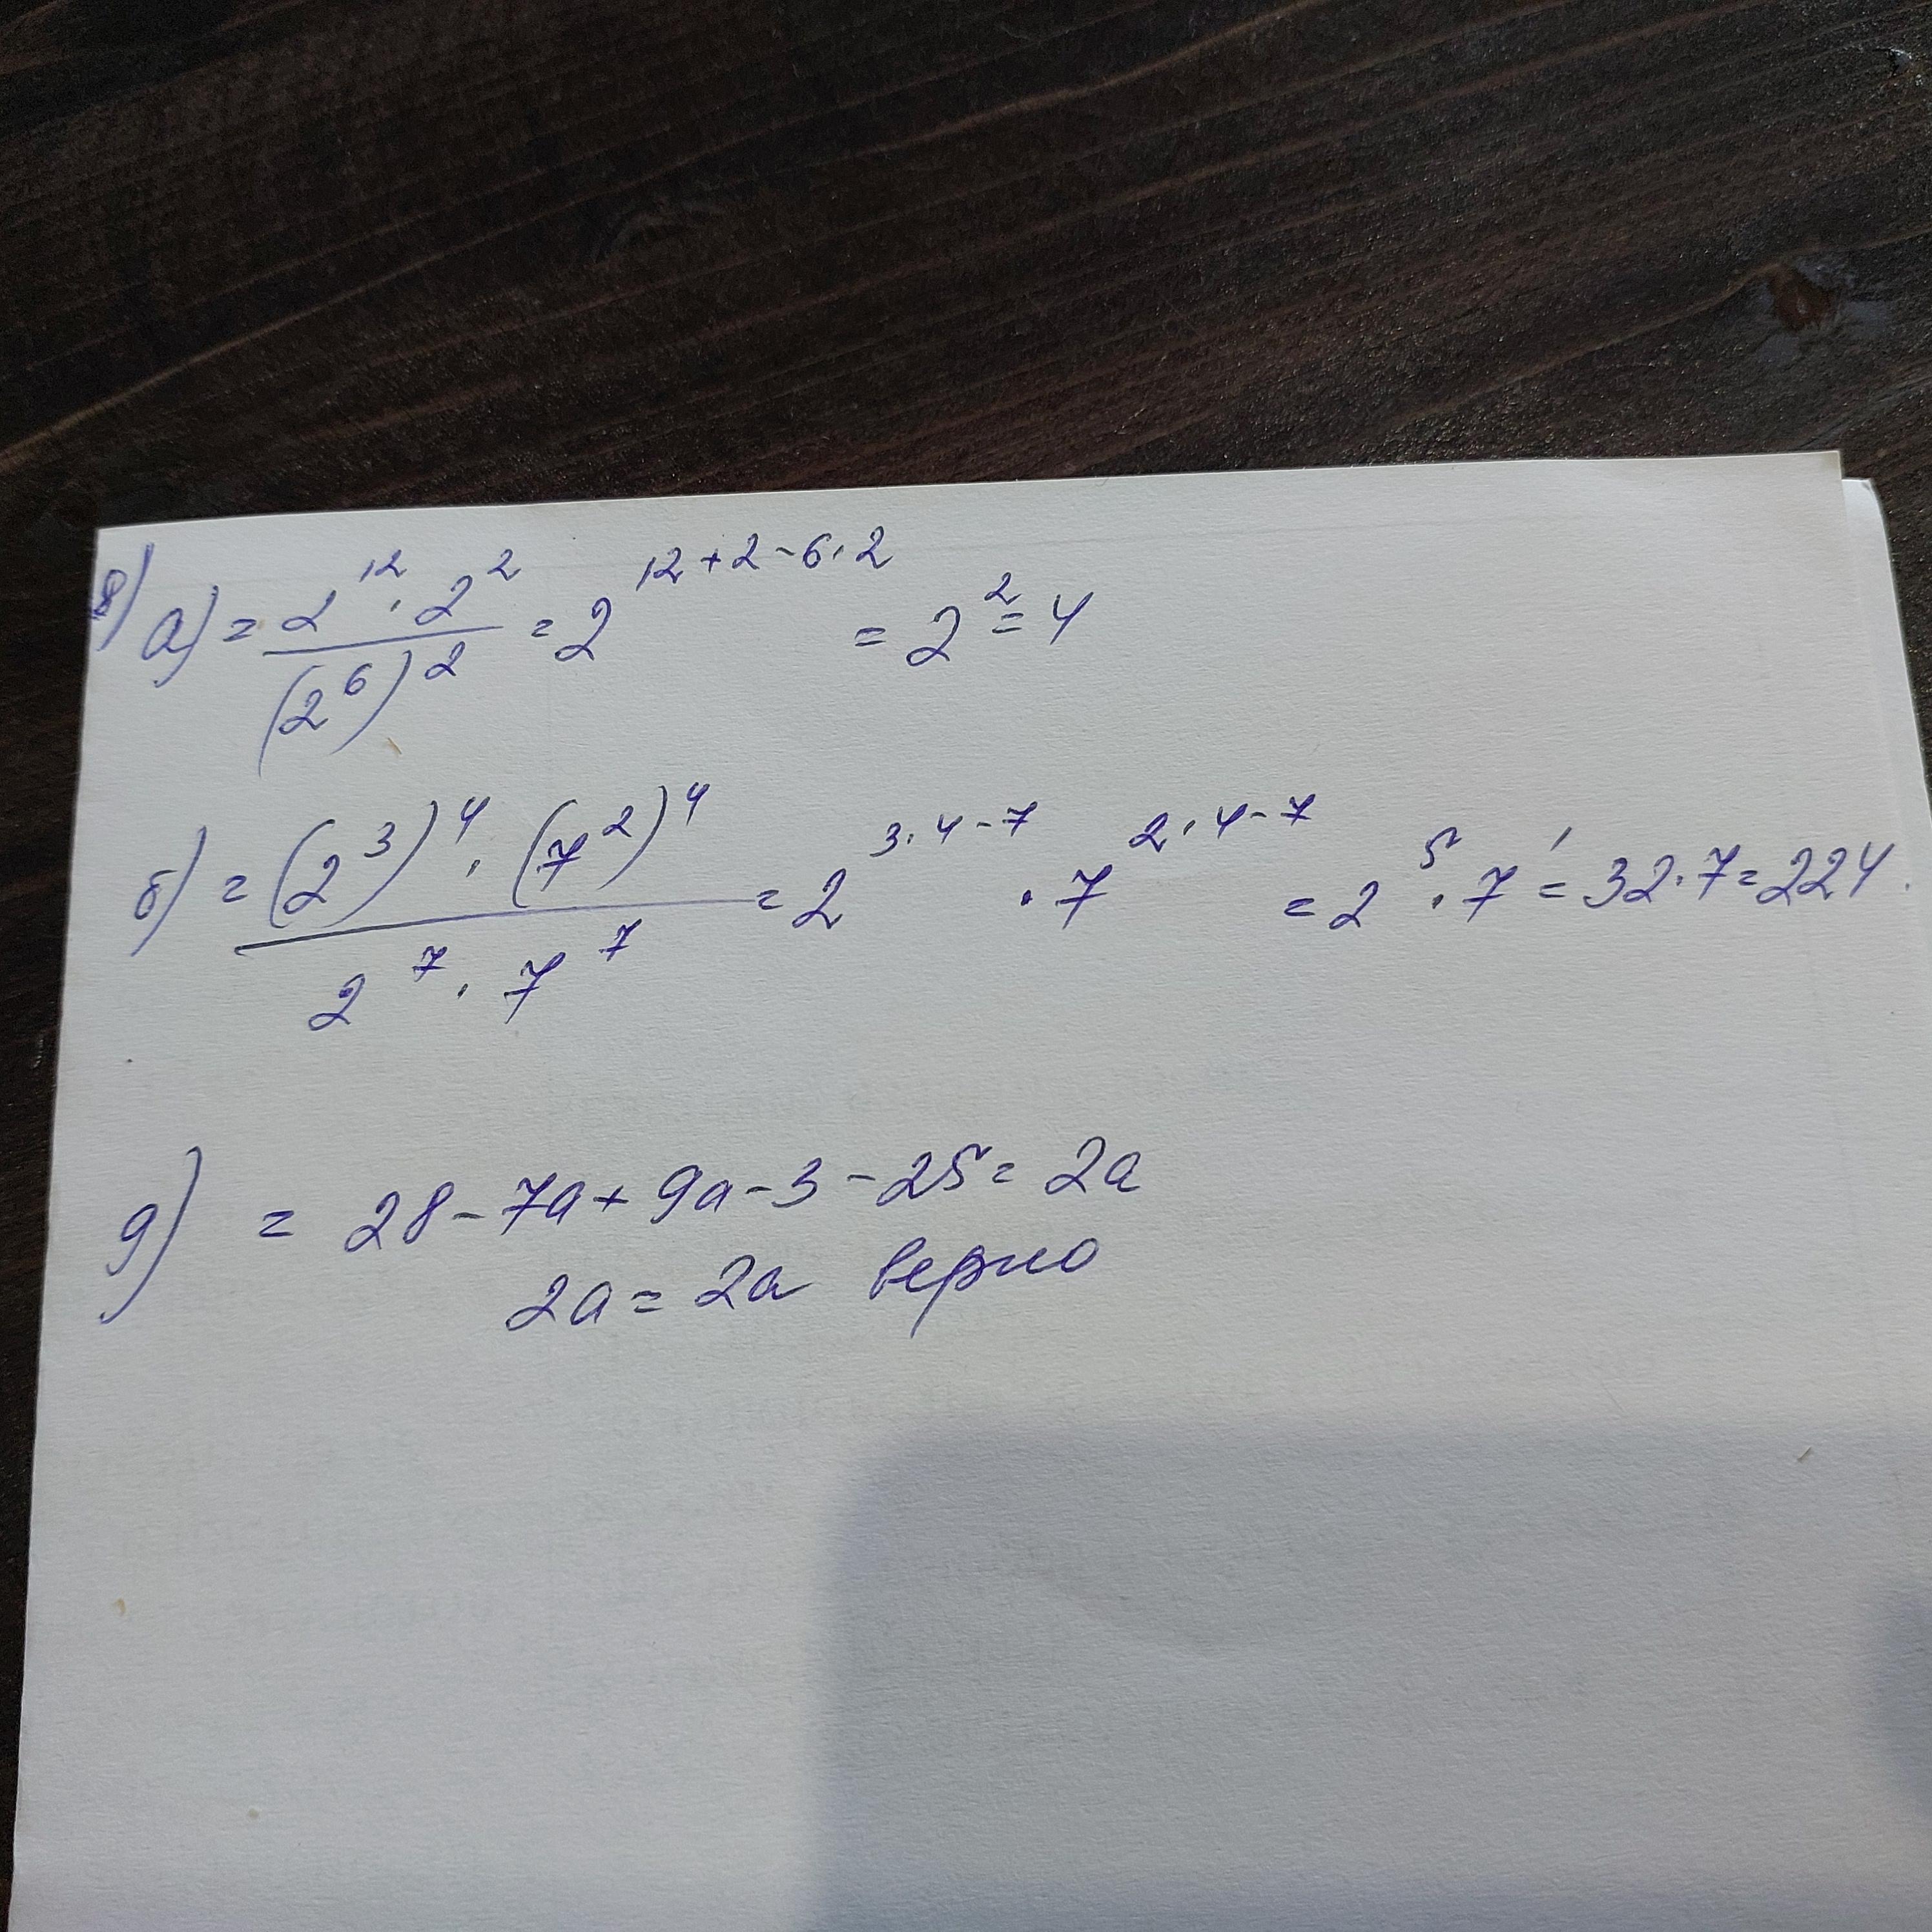 8) а) = 2^12 · 2^2 / (2^6)^2 = 2^(12+2-6·2) = 2^2 = 4
б) = (2^3)^4 · (7^2)^4 / 2^7 · 7^7 = 2^(3·4-7) · 7^(2·4-7) = 2^5 · 7^1 = 32·7=224.
9) = 28-7a+9a-3-25=2a
2a=2a верно